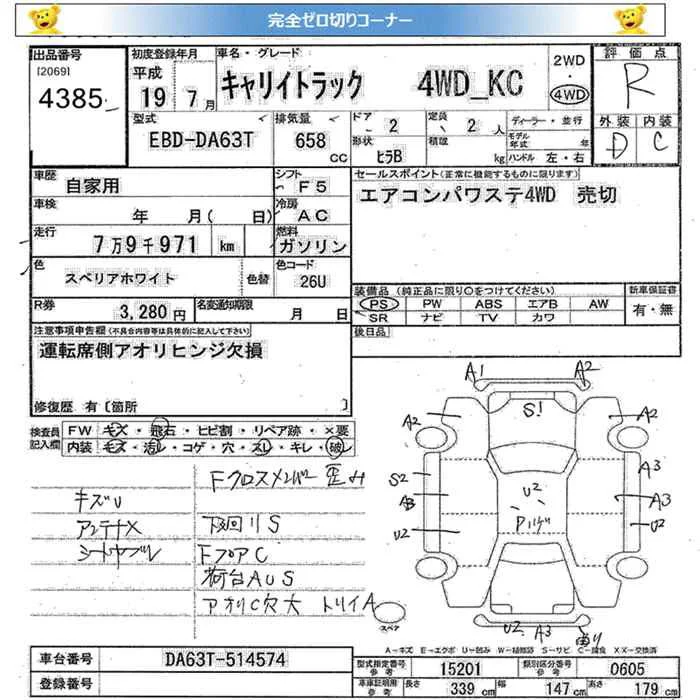 完全ゼロ切りコーナー
出品番号 初度登録年月 車名・グレード 2WD ・ 4WD 評価点
[2069] 4385 平成 19年 7月 キャリイトラック 4WD_KC R
型式 排気量 ドア 2 定員 2 人 ディーラー・並行 外装 内装
EBD-DA63T 658 CC 形状 ヒラB 積雑 kg モデル年式 年 ハンドル 左・右 D C
車歴 自家用 シフト F5 セールスポイント(正常に機能するものに限ります)
車検 年 月( 日) 冷房 AC エアコンパワステ4WD 売切
走行 7万9千971 km 燃料 ガソリン
色 スペリアホワイト 色替 色コード 26U
装備品 (純正品に限り○をつけてください) 新車保証書
R券 3,280円 名変通知期限 月 日 PS PW ABS エアB AW 有・無
SR ナビ TV カワ
注意事項申告欄(不具合内容等は具体的に記入して下さい) 後日品
運転席側アオリヒンジ欠損
修復歴 有〔箇所 〕
検査員記入欄 FW キズ・飛石・ヒビ割・リペア跡・×要
内装 キズ・汚レ・コゲ・穴・スレ・キレ・破レ
Fクロスメンバー歪み
キズU
アンテナX 下回りS
シートヤブレ FフロアC
荷台AUS
アオリC欠大 トリイA
A1 A2
A2 S1 A2
S2 A3
A3 U2 A3
U2 Pハゲ U2
スペア U2 A3 曲り
A-キズ E-エクボ U-凹み W-補修跡 S-サビ C-腐食 XX-交換済
車台番号 DA63T-514574 型式指定番号 参考 15201 類別区分番号 参考 0605
登録番号 車車証明用 参考 長さ 339 cm 幅 147 cm 高さ 179 cm